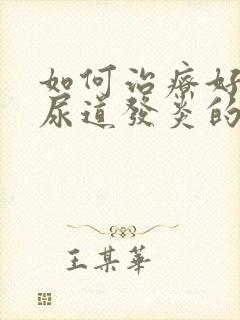 如何治療好
尿道發炎的
王某華